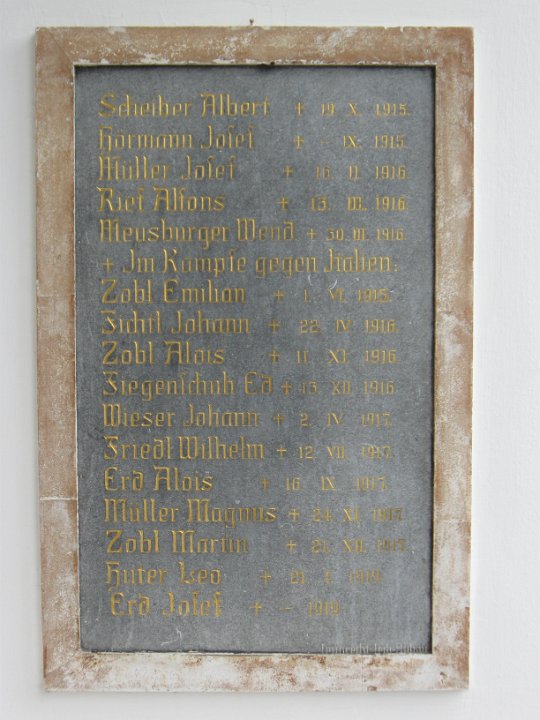 Scheiber Albert + 19. X. 1915.
Hörmann Josef + - IX. 1915.
Müller Josef + 16. II. 1916.
Rief Alfons + 13. III. 1916.
Meusburger Wend. + 30. III. 1916.
+ Im Kampfe gegen Italien:
Zobl Emilian + 1. VI. 1915.
Fichtl Johann + 22. IV. 1916.
Zobl Alois + 11. XI. 1916.
Ziegenschuh Ed + 13. XII. 1916.
Wieser Johann + 2. IV. 1917.
Friedl Wilhelm + 12. VII. 1917.
Erd Alois + 16. IX. 1917.
Müller Magnus + 24. XI. 1917.
Zobl Martin + 21. XII. 1917.
Huter Leo + 21. 1919.
Erd Josef + - 1919.